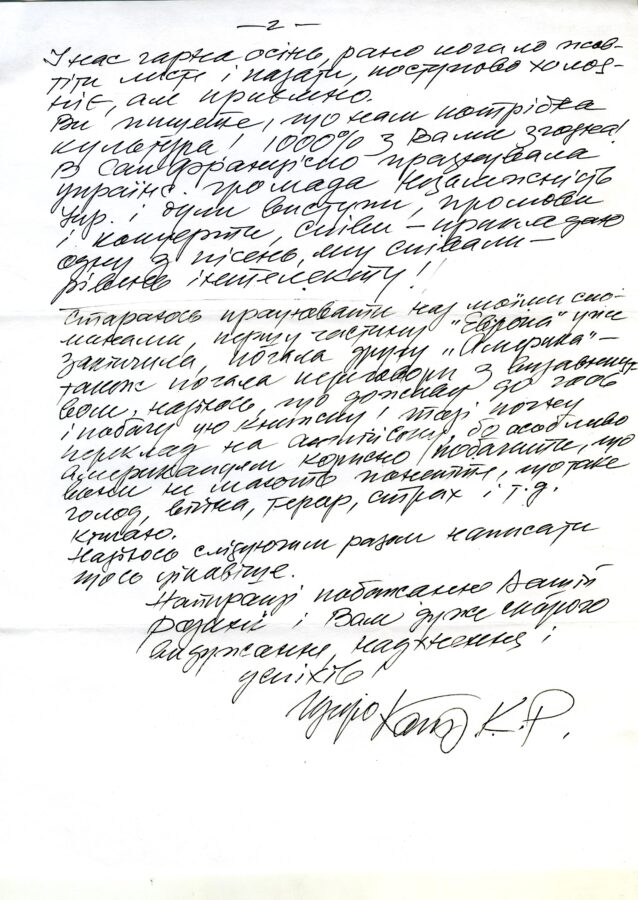 — 2 —
У нас гарна осінь, рано почало жов-
тіти листє і падати, поступово холод-
ніє, але приємно.
Ви пишете, що нам потрібна
культура! 1000% з Вами згодна!
В Сан Франціско празнувала
українс. громада Незалежність
Укр. і були виступи, промови
і концерти, співи — прикладаю
одну з пісень, яку співали —
рівень інтелекту!
Стараюсь працювати над моїми спо-
минами, першу частину "Европа" уже
закінчила, почала другу "Америка" —
також почала переговори з видавницт-
вом, надіюсь, що дожию до часу
і побачу цю книжку! тоді почну
переклад на англійську, бо особливо
Американцям корисно побачити, що
вони не мають понєття, що таке
голод, війна, терор, страх і т.д.
кінчаю.
Надіюсь слідуючим разом написати
щось цікавіще.
Найкращі побажання Вашій
родині і Вам дуже скорого
видужання, надхнення і
успіхів
Щиро К.Р.